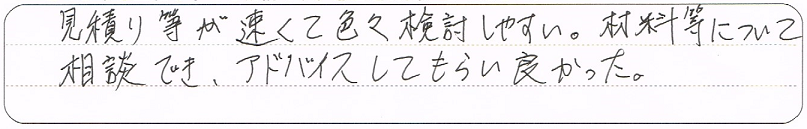 見積り等が速くて色々検討しやすい。材料等について
相談でき、アドバイスしてもらい良かった。